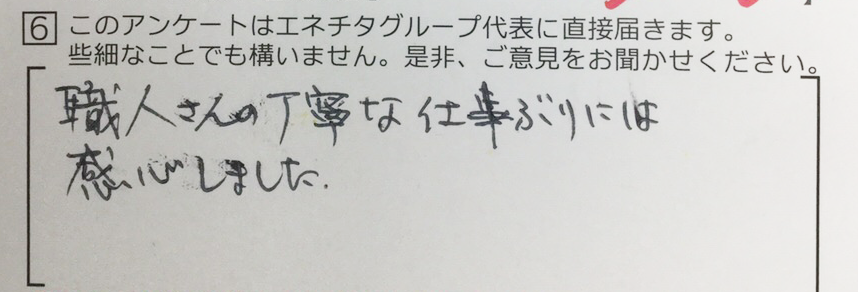 6 このアンケートはエネチタグループ代表に直接届きます。
些細なことでも構いません。是非、ご意見をお聞かせください。
職人さんの丁寧な仕事ぶりには
感心しました.